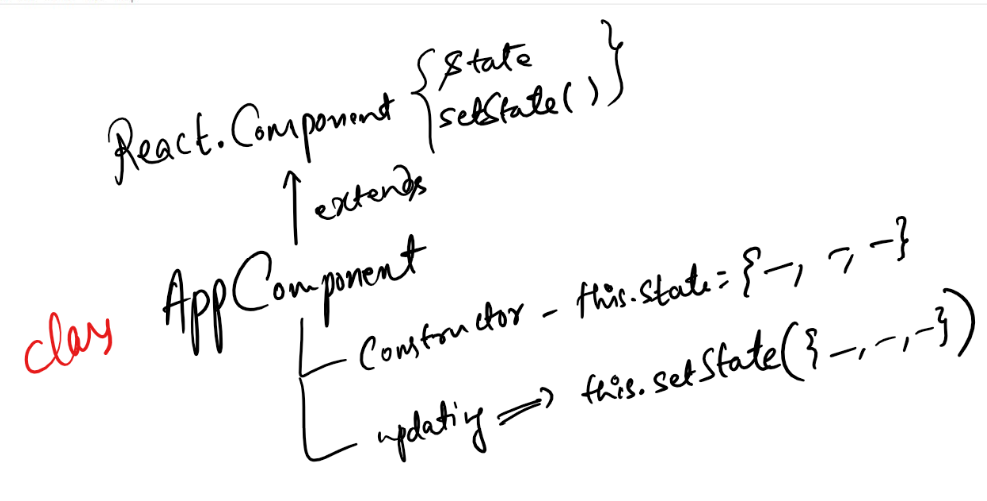 React.Component { state
setState() }
extends
class AppComponent
Constructor - this.state = { -, -, - }
updating => this.setState({ -, -, - })